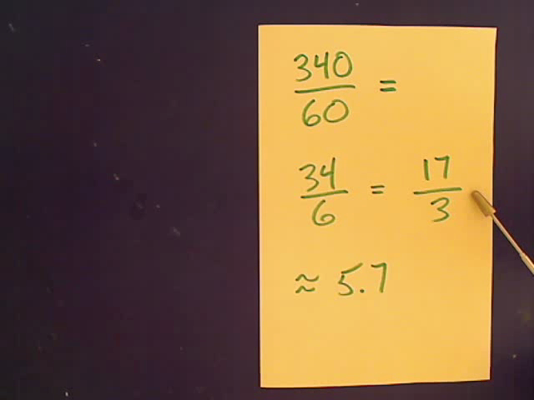 340/60 =
34/6 = 17/3
≈ 5.7